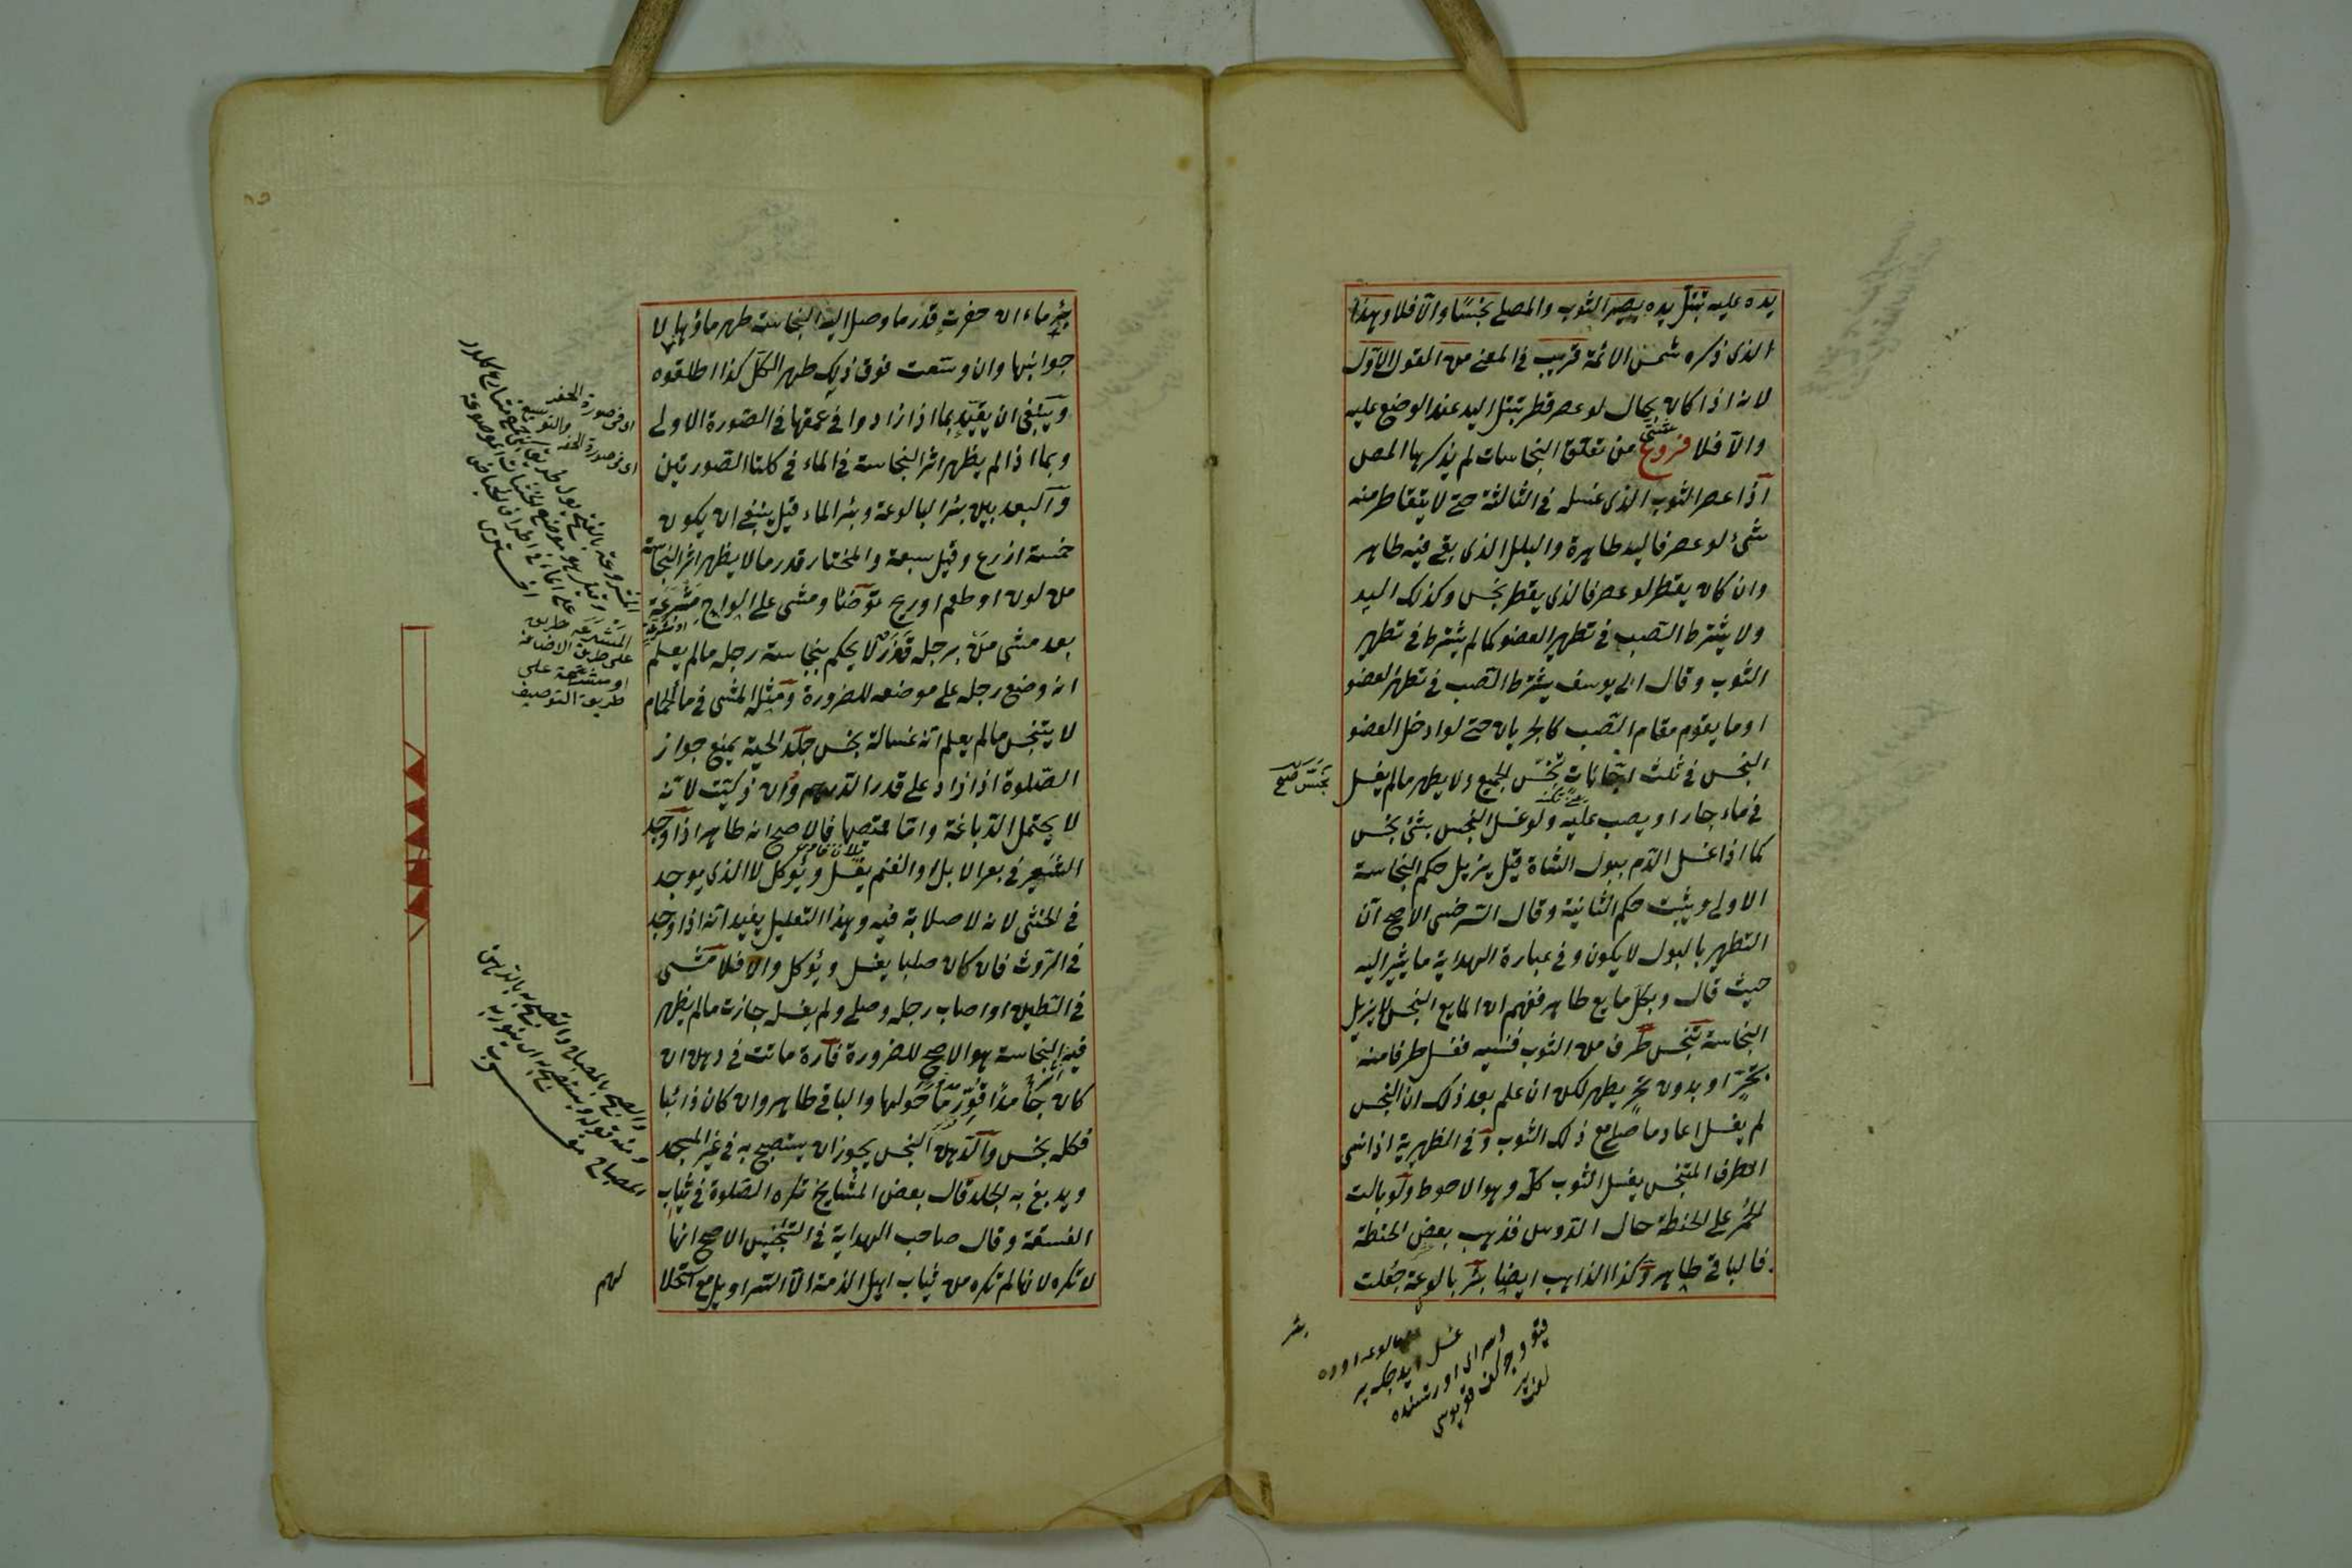 يده عليه تبتل يده يصير الثوب والمصلى نجسًا والّا فلا وهذا
الذى ذكره شمس الائمة قريب فى المعنى من القول الاول
لانه اذا كان بحال لو عصر قطر تبتل اليد عند الوضع عليه
والّا فلا فروع شتى من تعلق النجاسات لم يذكرها المص
اذا عصر الثوب الذى غسل فى الثالثة حتى لا يتقاطر منه
شئ لو عصر فاليد طاهرة والبلل الذى بقى فيه طاهر
وان كان يقطر لو عصر فالذى يقطر نجس وكذلك اليد
ولا يشترط الصب فى تطهير العضو كما لم يشترط فى تطهير
الثوب وقال ابى يوسف يشترط الصب فى تطهير العضو
او ما يقوم مقام الصب كالجريان حتى لو ادخل العضو
النجس فى ثلث اجّانات نجّس الجميع ولا يطهر مالم يغسل
فى ماء جار او يصب عليه ولو غسل النجس بشئ نجس
كما اذا غسل الدم ببول الشاة قيل يزيل حكم النجاسة
الاولى ويثبت حكم الثانية وقال السرخسى الاصح انّ
التطهير بالبول لا يكون وفى عبارة الهداية ما يشير اليه
حيث قال وبكل مايع طاهر ففهم ان المايع النجس لا يزيل
النجاسة تنجس طرف من الثوب فنسيه فغسل طرفا منه
بتحرّ او بدون تحرّ يطهر لكن ان علم بعد ذلك ان النجس
لم يغسل اعاد ما صلى مع ذلك الثوب وفى الظهيرية اذا نسى
الطرف المتنجس يغسل الثوب كلّه وهو الاحوط ولو بالت
الحمر على الحنطة حال الدوس فذهب بعض الحنطة
فالباقى طاهر وكذا الذاهب ايضا بئر بالوعة جعلت
نجّس صح
بئر
بئر ماء ان حفرت قدر ما وصل اليه النجاسة طهر ماؤها لا
جوانبها وان وسّعت فوق ذلك طهر الكل كذا اطلقوه
وينبغى ان يقيّد بما اذا زادوا فى عمقها فى الصورة الاولى
وبما اذا لم يظهر اثر النجاسة فى الماء فى كلتا الصورتين
والبعد بين بئر البالوعة وبئر الماء قيل ينبغى ان يكون
خمسة اذرع وقيل سبعة والمختار قدر ما لا يظهر اثر النجاسة
من لون او طعم او ريح توضّأ ومشى على الواح مشرعة
بعد مشى من برجله قذر لا يحكم بنجاسة رجله مالم يعلم
انه وضع رجله على موضعه للضرورة ومثله المشى فى ماء الحمام
لا يتنجس مالم يعلم انه غسالة نجس جلد الحية يمنع جواز
الصلوة اذا زاد على قدر الدرهم وان ذكيّت لانه
لا يحتمل الدباغة واما قميصها فالاصح انه طاهر اذا وجد
الشعير فى بعر الابل او الغنم يغسل ويؤكل لا الذى يوجد
فى الخثى لانه لا صلابة فيه وهذا التعليل يفيد انه اذا وجد
فى الروث فان كان صلبا يغسل ويؤكل والا فلا مشى
فى الطين او اصاب رجله وصلى ولم يغسله جازت مالم يظهر
فيه النجاسة هو الاصح للضرورة فأرة ماتت فى دهن ان
كان جامدًا قوّر ما حولها والباقى طاهر وان كان ذائبا
فكله نجس والدهن النجس يجوز ان يستصبح به فى غير المسجد
ويدبغ به الجلد قال بعض المشايخ تكره الصلوة فى ثياب
الفسقة وقال صاحب الهداية فى التجنيس الاصح انها
لا تكره لانها لم تكره من ثياب اهل الذمة الّا السراويل مع استحلا
لهم
اى فى صورة الحفر والتوسيع
اى فى صورة الحفر
المشرعة طريق
على طريق الاضافة
او مشرعة على
طريق التوصيف